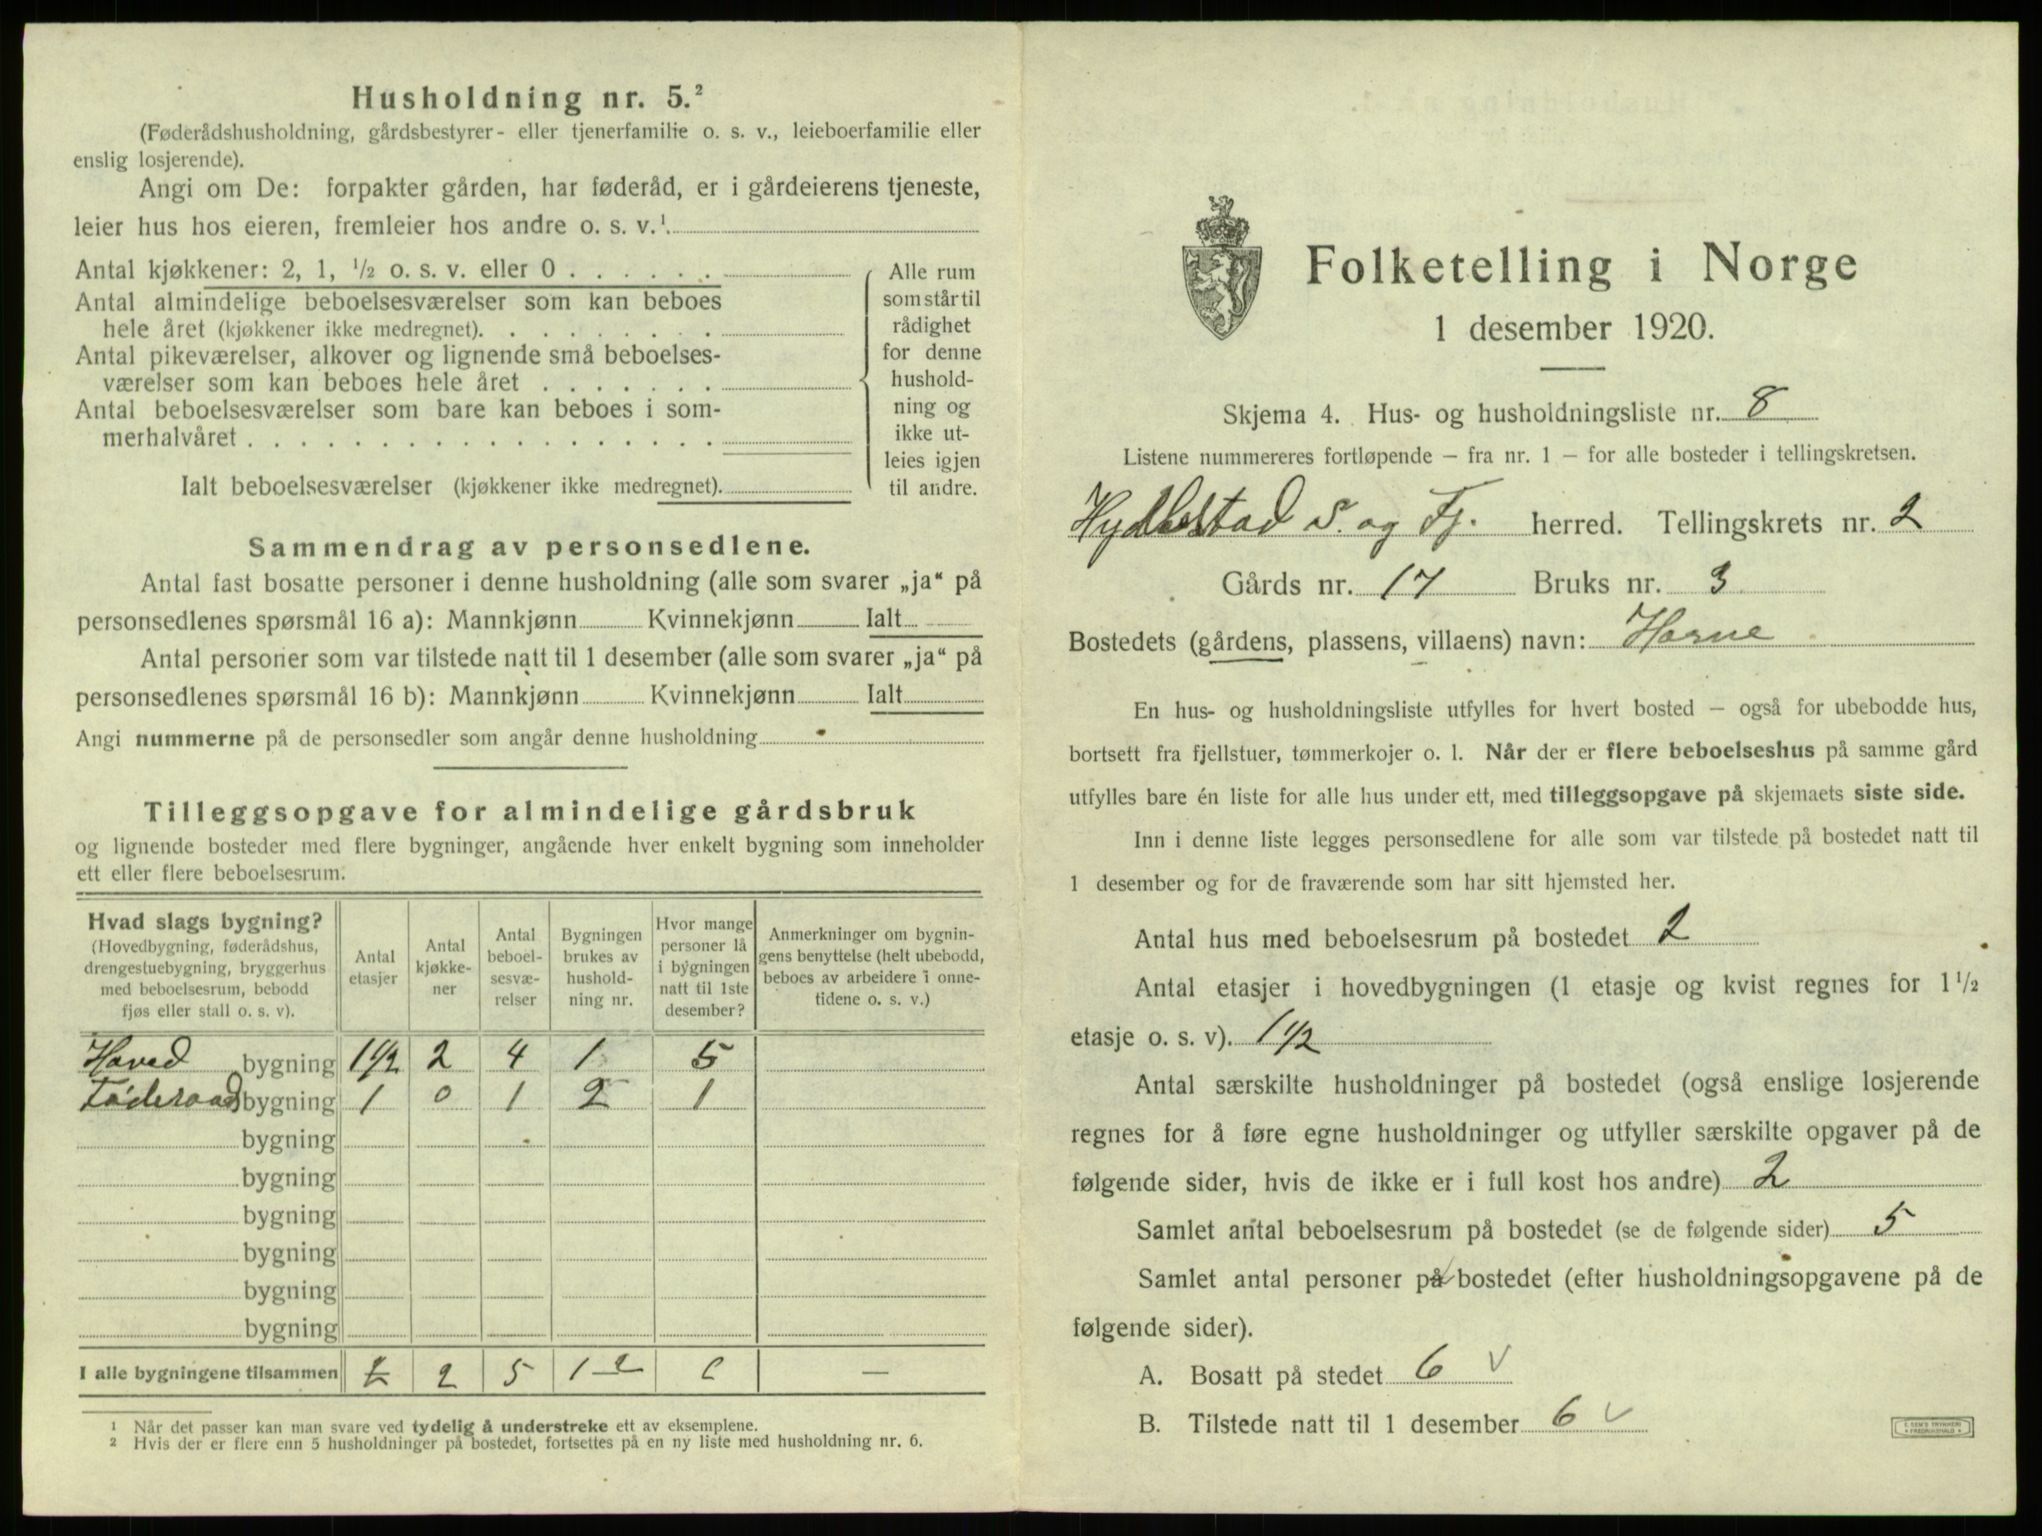 Husholdning nr. 5.²
(Føderådshusholdning, gårdsbestyrer- eller tjenerfamilie o. s. v., leieboerfamilie eller
enslig losjerende).
Angi om De: forpakter gården, har føderåd, er i gårdeierens tjeneste,
leier hus hos eieren, fremleier hos andre o. s. v.¹
Antal kjøkkener: 2, 1, ½ o. s. v. eller 0 . . . . . .
Antal almindelige beboelsesværelser som kan beboes
hele året (kjøkkener ikke medregnet). . . . . . . . .
Antal pikeværelser, alkover og lignende små beboelses-
værelser som kan beboes hele året . . . . . . .
Antal beboelsesværelser som bare kan beboes i som-
merhalvåret . . . . . . . . . . . . . . . . . .
Ialt beboelsesværelser (kjøkkener ikke medregnet).
Alle rum
som står til
rådighet
for denne
hushold-
ning og
ikke ut-
leies igjen
til andre.
Sammendrag av personsedlene.
Antal fast bosatte personer i denne husholdning (alle som svarer „ja“ på
personsedlenes spørsmål 16 a): Mannkjønn Kvinnekjønn Ialt
Antal personer som var tilstede natt til 1 desember (alle som svarer „ja“ på
personsedlenes spørsmål 16 b): Mannkjønn Kvinnekjønn Ialt
Angi nummerne på de personsedler som angår denne husholdning
Tilleggsopgave for almindelige gårdsbruk
og lignende bosteder med flere bygninger, angående hver enkelt bygning som inneholder
ett eller flere beboelsesrum.
Hvad slags bygning?
(Hovedbygning, føderådshus,
drengestuebygning, bryggerhus
med beboelsesrum, bebodd
fjøs eller stall o. s. v).
Antal
etasjer
Antal
kjøkke-
ner
Antal
beboel-
sesvæ-
relser
Bygningen
brukes av
hushold-
ning nr.
Hvor mange
personer lå
i bygningen
natt til 1ste
desember?
Anmerkninger om bygnin-
gens benyttelse (helt ubebodd,
beboes av arbeidere i onne-
tidene o. s. v.)
Hoved bygning 1½ 2 4 1 5
Føderaads bygning 1 0 1 2 1
bygning
bygning
bygning
bygning
bygning
bygning
I alle bygningene tilsammen 2 2 5 1-2 6 —
¹ Når det passer kan man svare ved tydelig å understreke ett av eksemplene.
² Hvis der er flere enn 5 husholdninger på bostedet, fortsettes på en ny liste med husholdning nr. 6.
Folketelling i Norge
1 desember 1920.
Skjema 4. Hus- og husholdningsliste nr. 8
Listene nummereres fortløpende – fra nr. 1 – for alle bosteder i tellingskretsen.
Hyllestad S. og Fj. herred. Tellingskrets nr. 2
Gårds nr. 17 Bruks nr. 3
Bostedets (gårdens, plassens, villaens) navn: Horne
En hus- og husholdningsliste utfylles for hvert bosted – også for ubebodde hus,
bortsett fra fjellstuer, tømmerkojer o. l. Når der er flere beboelseshus på samme gård
utfylles bare én liste for alle hus under ett, med tilleggsopgave på skjemaets siste side.
Inn i denne liste legges personsedlene for alle som var tilstede på bostedet natt til
1 desember og for de fraværende som har sitt hjemsted her.
Antal hus med beboelsesrum på bostedet 2
Antal etasjer i hovedbygningen (1 etasje og kvist regnes for 1½
etasje o. s. v). 1½
Antal særskilte husholdninger på bostedet (også enslige losjerende
regnes for å føre egne husholdninger og utfyller særskilte opgaver på de
følgende sider, hvis de ikke er i full kost hos andre) 2
Samlet antal beboelsesrum på bostedet (se de følgende sider) 5
Samlet antal personer på bostedet (efter husholdningsopgavene på de
følgende sider).
A. Bosatt på stedet 6 v
B. Tilstede natt til 1 desember 6 v